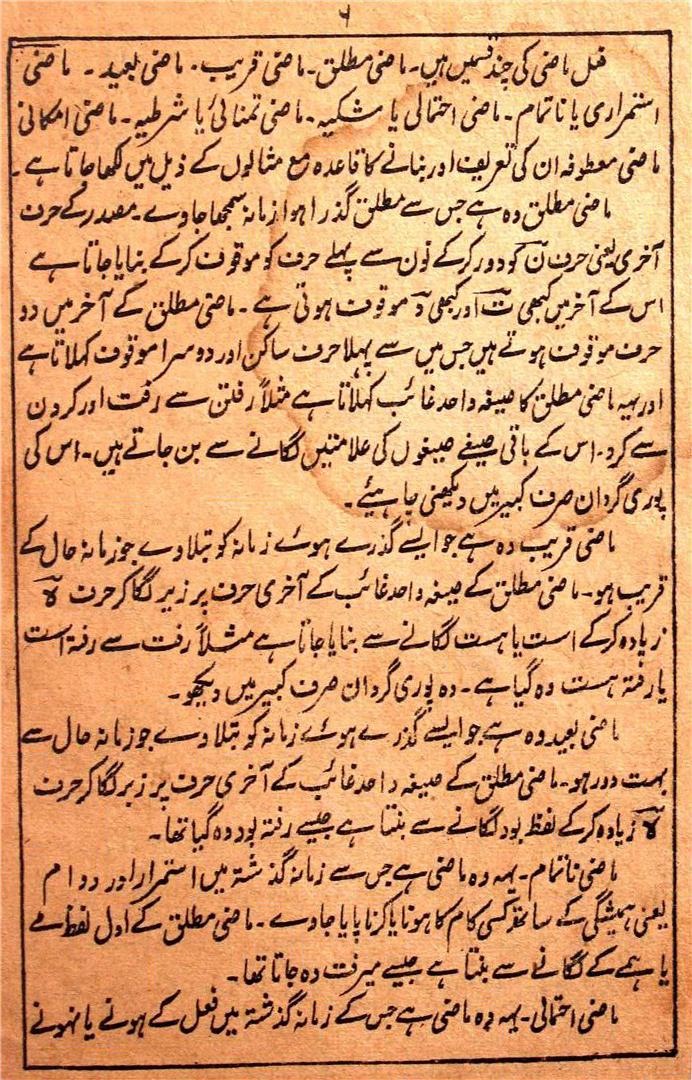 ۶
فعل ماضی کی چند قسمیں ہیں۔ ماضی مطلق۔ ماضی قریب۔ ماضی بعید۔ ماضی
استمراری یا ناتمام۔ ماضی احتمالی یا شکیہ۔ ماضی تمنائی یا شرطیہ۔ ماضی امکانی
ماضی معطوفہ ان کی تعریف اور بنانے کا قاعدہ مع مثالوں کے ذیل میں لکھا جاتا ہے۔
ماضی مطلق وہ ہے جس سے مطلق گذرا ہوا زمانہ سمجھا جاوے۔ مصدر کے حرف
آخری یعنی حرف ن کو دور کرکے نون سے پہلے حرف کو موقوف کرکے بنایا جاتا ہے
اس کے آخر میں کبھی ت اور کبھی د موقوف ہوتی ہے۔ ماضی مطلق کے آخر میں دو
حرف موقوف ہوتے ہیں جس میں سے پہلا حرف ساکن اور دوسرا موقوف کہلاتا ہے
اور یہہ ماضی مطلق کا صیغہ واحد غائب کہلاتا ہے مثلاً رفتن سے رفت اور کردن
سے کرد۔ اس کے باقی صیغے صیغوں کی علامتیں لگانے سے بن جاتے ہیں۔ اس کی
پوری گردان صرف کبیر میں دیکھنی چاہیئے۔
ماضی قریب وہ ہے جو ایسے گذرے ہوئے زمانہ کو بتلاوے جو زمانہ حال کے
قریب ہو۔ ماضی مطلق کے صیغہ واحد غائب کے آخری حرف پر زبر لگا کر حرف ہ
زیادہ کرکے است یا ہست لگانے سے بنایا جاتا ہے مثلاً رفت سے رفتہ است
یا رفتہ ہست وہ گیا ہے۔ وہ پوری گردان صرف کبیر میں دیکھو۔
ماضی بعید وہ ہے جو ایسے گذرے ہوئے زمانہ کو بتلاوے جو زمانہ حال سے
بہت دور ہو۔ ماضی مطلق کے صیغہ واحد غائب کے آخری حرف پر زبر لگا کر حرف
ہ زیادہ کرکے لفظ بود لگانے سے بنتا ہے جیسے رفتہ بود وہ گیا تھا۔
ماضی ناتمام۔ یہہ وہ ماضی ہے جس سے زمانہ گذشتہ میں استمرار اور دوام
یعنی ہمیشگی کے ساتھ کسی کام کا ہونا یا کرنا پایا جاوے۔ ماضی مطلق کے اول لفظ مے
یا ہمے کے لگانے سے بنتا ہے جیسے میرفت وہ جاتا تھا۔
ماضی احتمالی۔ یہہ وہ ماضی ہے جس کے زمانہ گذشتہ میں فعل کے ہونے یا نہونے